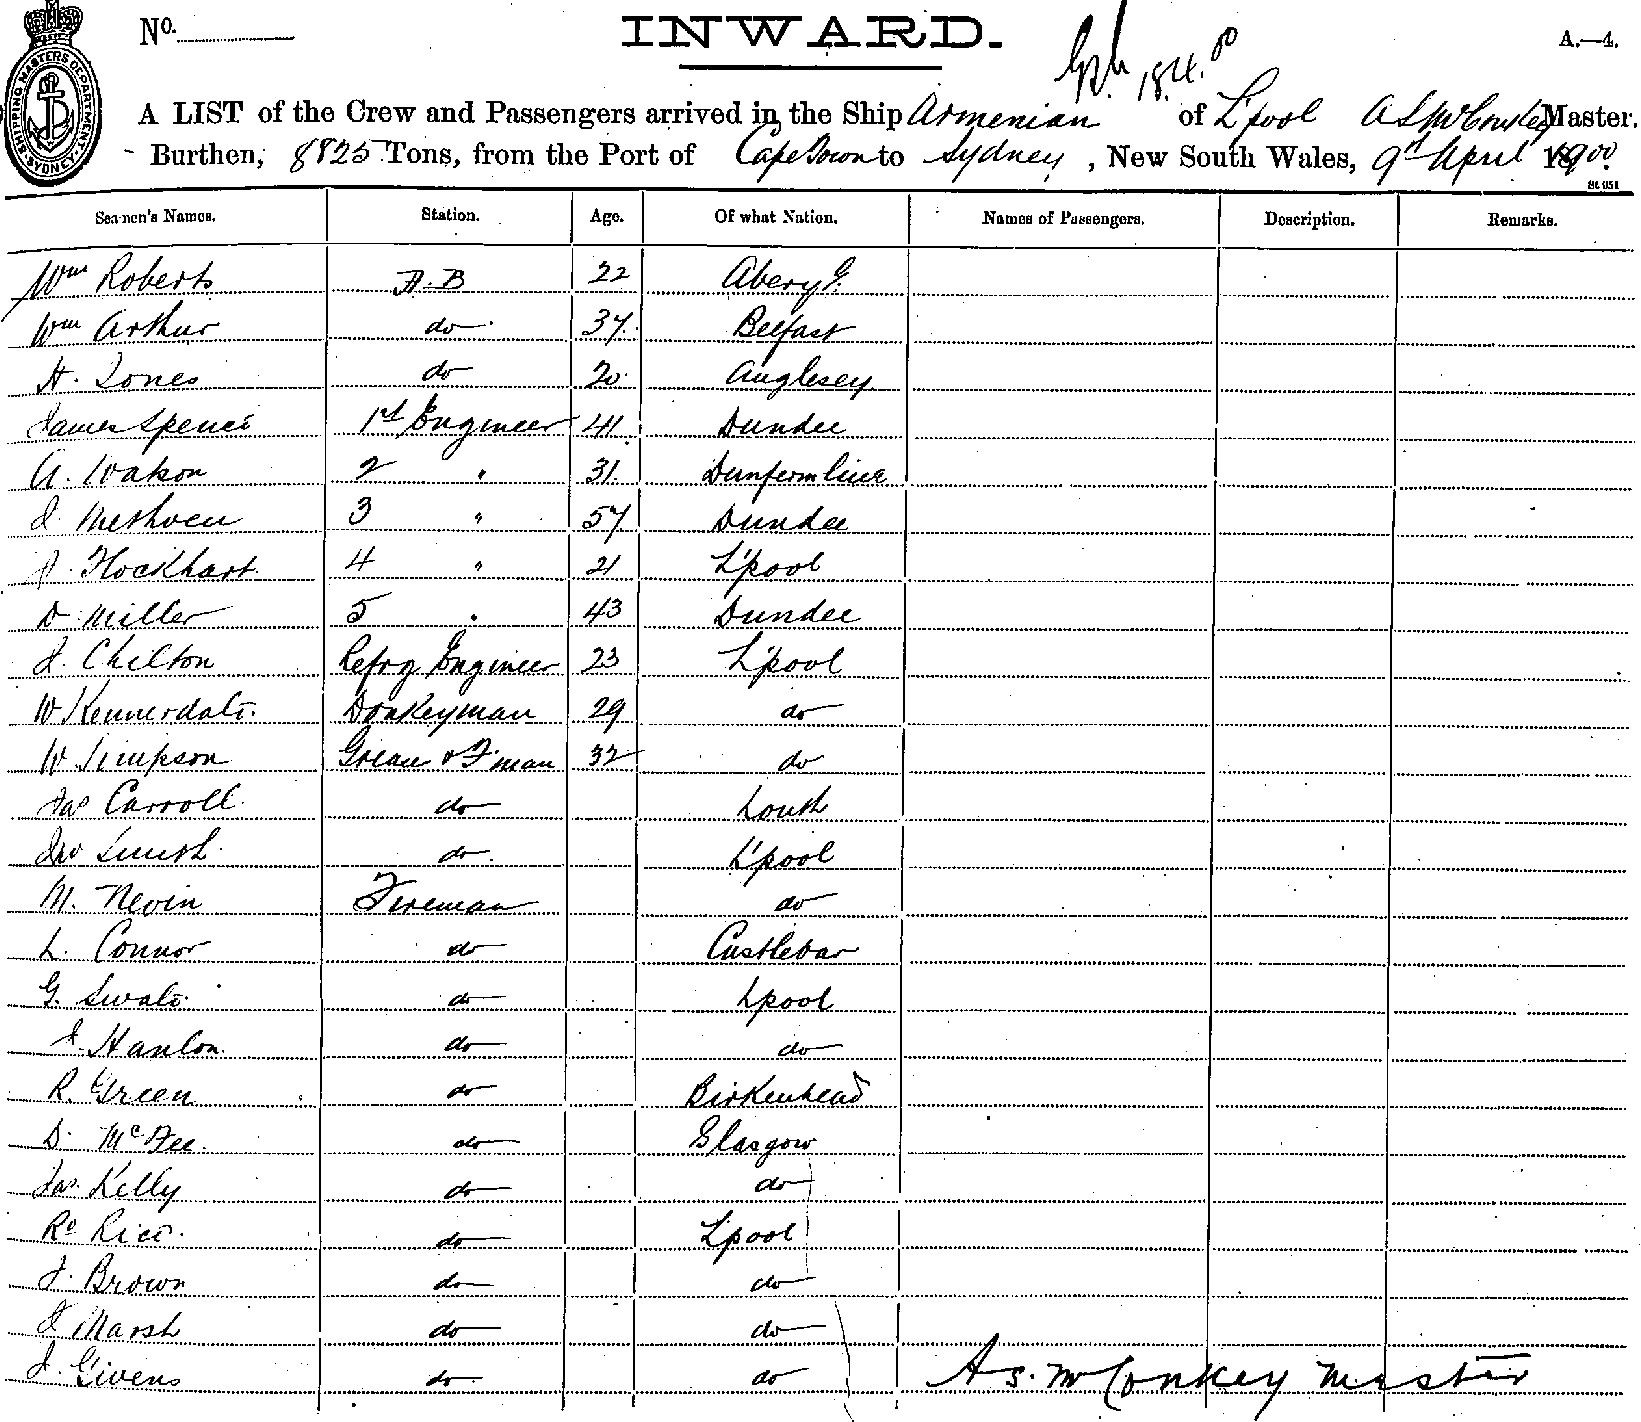 No. INWARD. A.—4.
18.4.00
A LIST of the Crew and Passengers arrived in the Ship Armenian of L'pool A S McConkey Master.
Burthen, 8825 Tons, from the Port of Cape Town to Sydney, New South Wales, 9th April 1900.
SHIPPING MASTERS DEPARTMENT SYDNEY
Seamen's Names. Station. Age. Of what Nation. Names of Passengers. Description. Remarks.
Wm Roberts A.B 22
Wm Arthur do 37 Belfast
H. Jones do 20 Anglesey
James Spence 1st Engineer 41 Dundee
A. Watson 2 " 31 Dunfermline
J. Methven 3 " 57 Dundee
Flockhart 4 " 21 L'pool
D Miller 5 " 43 Dundee
J. Chilton Refrg Engineer 23 L'pool
W Kennerdale Donkeyman 29 do
W Simpson Greaser & F'man 32 do
Jas Carroll do Louth
Jno Smith do L'pool
M. Nevin Fireman do
L. Connor do Castlebar
G. do L'pool
J. Hanlon do do
R. Green do Birkenhead
D. McFee do Glasgow
Jas Kelly do do
Rd Rice do L'pool
J. Brown do do
J Marsh do do
J. Givens do do As. McConkey Master